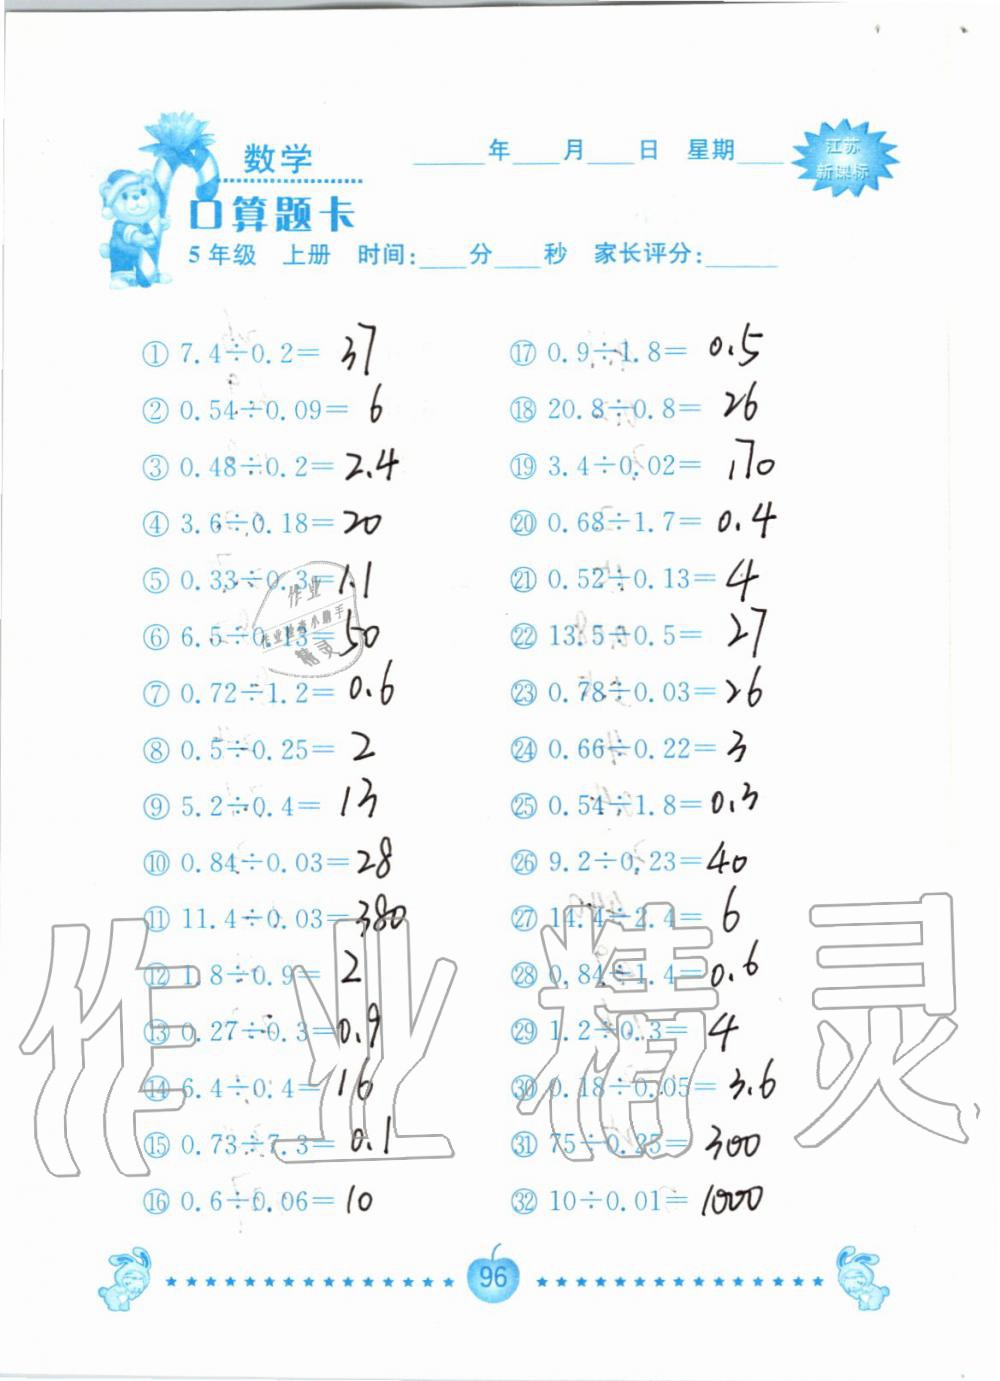 数学
____年____月____日 星期____
江苏
新课标
口算题卡
5年级 上册 时间:____分____秒 家长评分:____
① 7.4÷0.2= 37
② 0.54÷0.09= 6
③ 0.48÷0.2= 2.4
④ 3.6÷0.18= 20
⑤ 0.33÷0.3= 1.1
⑥ 6.5÷0.13= 50
⑦ 0.72÷1.2= 0.6
⑧ 0.5÷0.25= 2
⑨ 5.2÷0.4= 13
⑩ 0.84÷0.03= 28
⑪ 11.4÷0.03= 380
⑫ 1.8÷0.9= 2
⑬ 0.27÷0.3= 0.9
⑭ 6.4÷0.4= 16
⑮ 0.73÷7.3= 0.1
⑯ 0.6÷0.06= 10
⑰ 0.9÷1.8= 0.5
⑱ 20.8÷0.8= 26
⑲ 3.4÷0.02= 170
⑳ 0.68÷1.7= 0.4
㉑ 0.52÷0.13= 4
㉒ 13.5÷0.5= 27
㉓ 0.78÷0.03= 26
㉔ 0.66÷0.22= 3
㉕ 0.54÷1.8= 0.3
㉖ 9.2÷0.23= 40
㉗ 14.4÷2.4= 6
㉘ 0.84÷1.4= 0.6
㉙ 1.2÷0.3= 4
㉚ 0.18÷0.05= 3.6
㉛ 75÷0.25= 300
㉜ 10÷0.01= 1000
作业
作业检查小助手
精灵
作业精灵
96